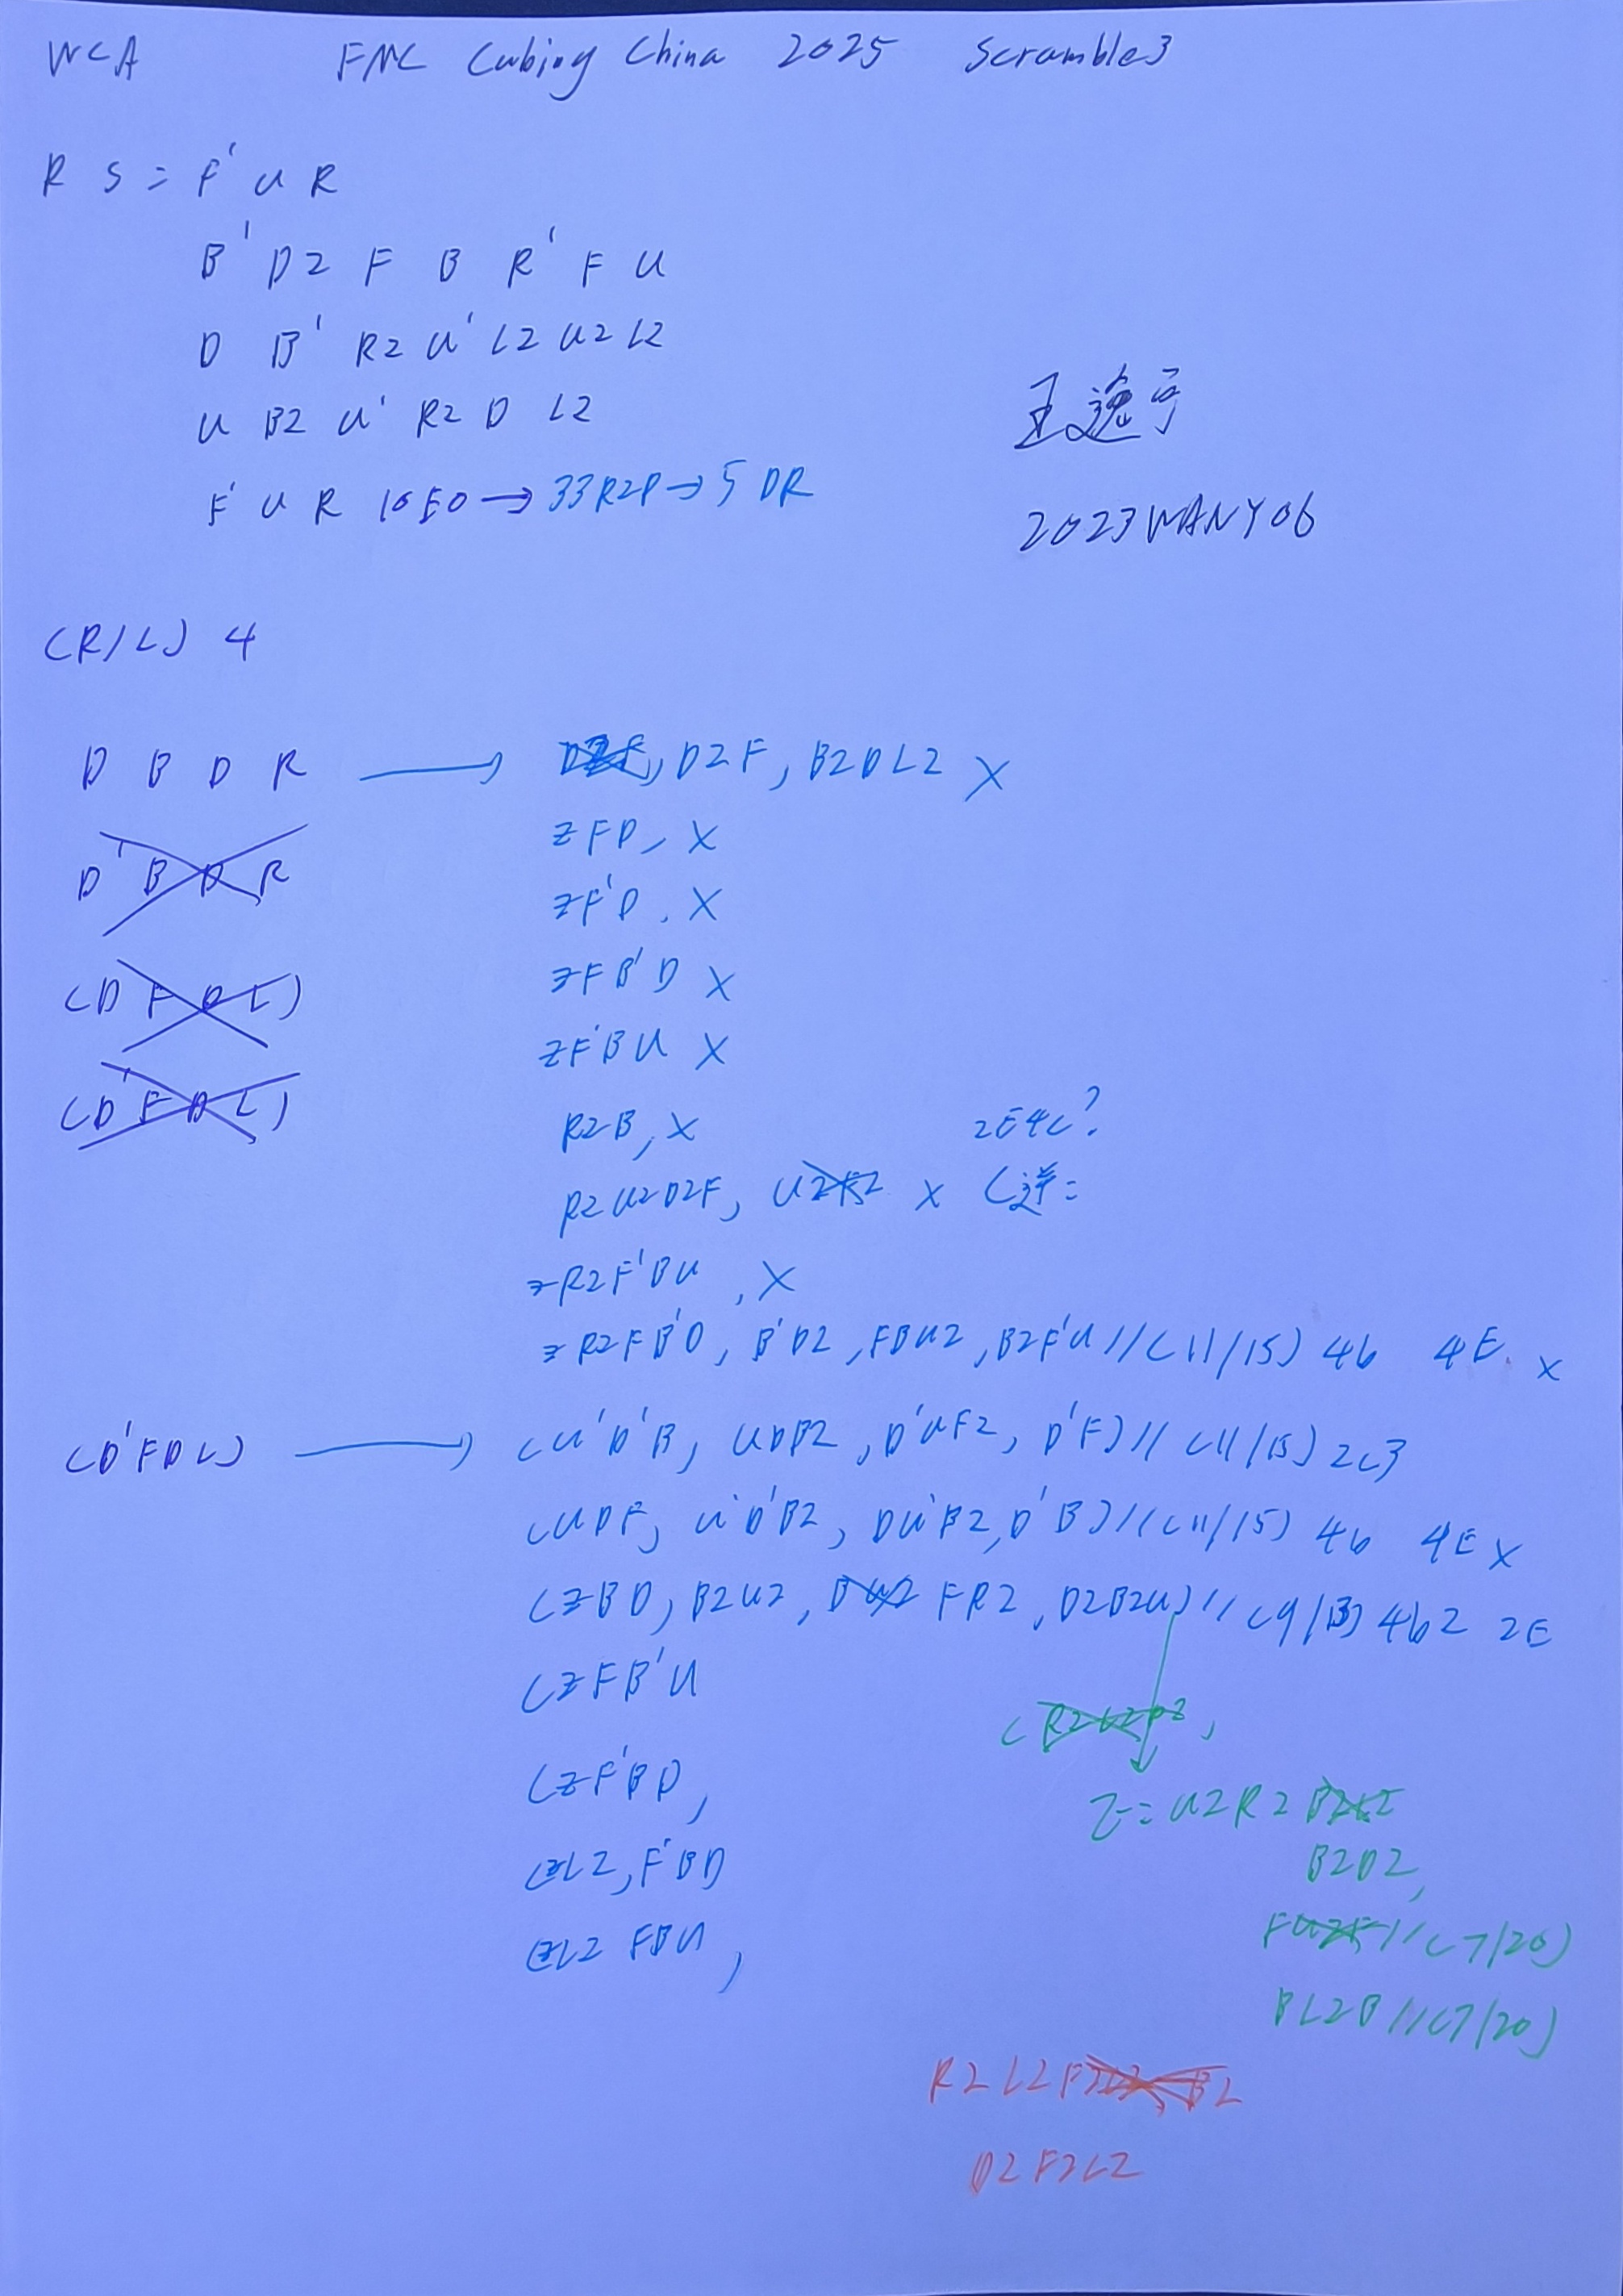 WCA FMC Cubing China 2025 Scramble3
R S = F' U R
B' D2 F B R' F U
D B' R2 U' L2 U2 L2
U B2 U' R2 D L2
F' U R 10EO → 33R2P → 5 DR
王逸宇
2023WANY06
(R/L) 4
D B D R → D2F, B2DL2 X
D' B D R
(D F D L)
(D' F D L)
zFD, X
zF'D, X
zFB'D X
zF'BU X
R2B, X 2E4C?
R2U2D2F, U2F2 X (逆=
zR2F'BU, X
zR2FB'D, B'D2, FBU2, B2F'U//(11/15) 4b 4E. X
(D'FDL) → (U'D'B, UDB2, D'UF2, D'F)//(11/15) 2C3
(UDF, U'D'B2, DU'B2, D'B)//(11/15) 4b 4E X
(zBD, B2U2, FR2, D2B2U)//(9/13) 4b2 2E
(zFB'U
(zF'BD,
(zL2, F'BD
(zL2 FBU,
Z= U2R2
B2D2,
FU2F//(7/20)
BL2B//(7/20)
R2L2
D2F2L2